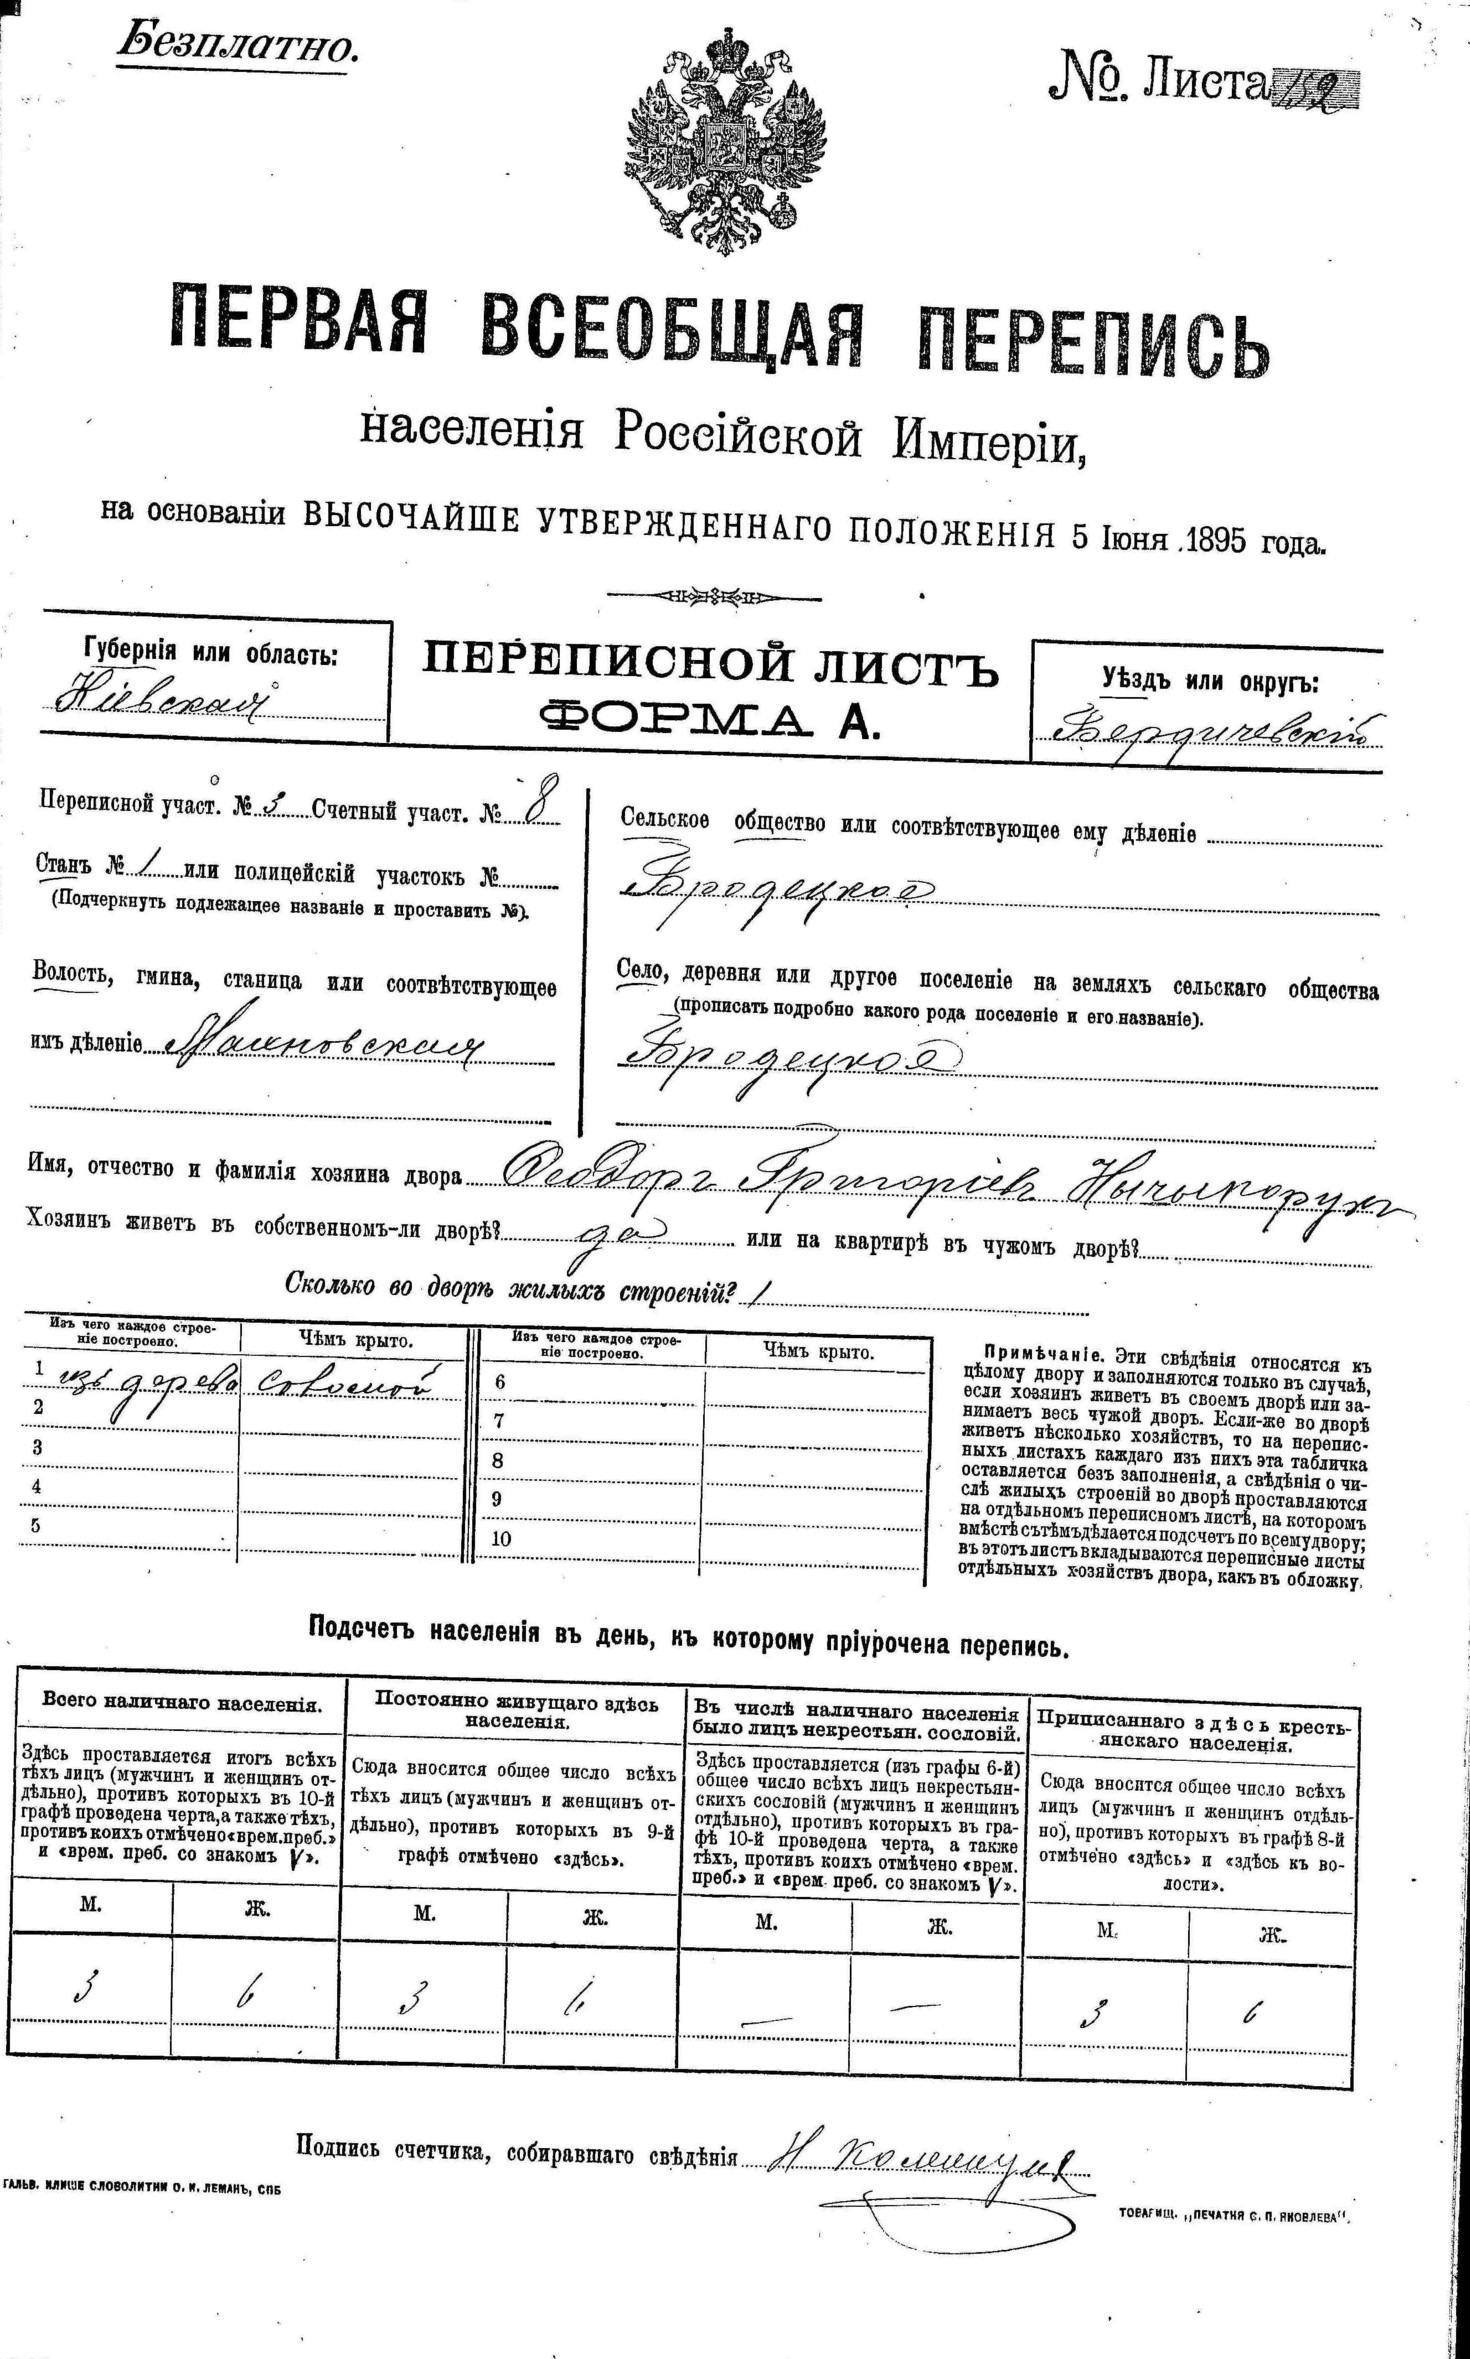 Безплатно.
№. Листа 152
ПЕРВАЯ ВСЕОБЩАЯ ПЕРЕПИСЬ
населенія Россійской Имперіи,
на основаніи ВЫСОЧАЙШЕ УТВЕРЖДЕННАГО ПОЛОЖЕНІЯ 5 Іюня 1895 года.
Губернія или область:
Кіевская
ПЕРЕПИСНОЙ ЛИСТЪ
ФОРМА А.
Уѣздъ или округъ:
Бердичевскій
Переписной участ. № 3 Счетный участ. № 8
Станъ № 1 или полицейскій участокъ №
(Подчеркнуть подлежащее названіе и проставить №).
Волость, гмина, станица или соотвѣтствующее
имъ дѣленіе
Сельское общество или соотвѣтствующее ему дѣленіе
Бродецкое
Село, деревня или другое поселеніе на земляхъ сельскаго общества
(прописать подробно какого рода поселеніе и его названіе).
Бродецкое
Имя, отчество и фамилія хозяина двора Феодоръ Григоріевъ
Хозяинъ живетъ въ собственномъ-ли дворѣ? да или на квартирѣ въ чужомъ дворѣ?
Сколько во дворѣ жилыхъ строеній? 1
Изъ чего каждое строе-
ніе построено.
Чѣмъ крыто.
Изъ чего каждое строе-
ніе построено.
Чѣмъ крыто.
1 изъ дерева соломой 6
2 7
3 8
4 9
5 10
Примѣчаніе. Эти свѣдѣнія относятся къ
цѣлому двору и заполняются только въ случаѣ,
если хозяинъ живетъ въ своемъ дворѣ или за-
нимаетъ весь чужой дворъ. Если-же во дворѣ
живетъ нѣсколько хозяйствъ, то на перепис-
ныхъ листахъ каждаго изъ нихъ эта табличка
оставляется безъ заполненія, а свѣдѣнія о чи-
слѣ жилыхъ строеній во дворѣ проставляются
на отдѣльномъ переписномъ листѣ, на которомъ
вмѣстѣ съ тѣмъ дѣлается подсчетъ по всему двору;
въ этотъ листъ вкладываются переписные листы
отдѣльныхъ хозяйствъ двора, какъ въ обложку.
Подсчетъ населенія въ день, къ которому пріурочена перепись.
Всего наличнаго населенія.
Здѣсь проставляется итогъ всѣхъ
тѣхъ лицъ (мужчинъ и женщинъ от-
дѣльно), противъ которыхъ въ 10-й
графѣ проведена черта, а также тѣхъ,
противъ коихъ отмѣчено «врем. преб.»
и «врем. преб. со знакомъ V».
Постоянно живущаго здѣсь
населенія.
Сюда вносится общее число всѣхъ
тѣхъ лицъ (мужчинъ и женщинъ от-
дѣльно), противъ которыхъ въ 9-й
графѣ отмѣчено «здѣсь».
Въ числѣ наличнаго населенія
было лицъ некрестьян. сословій.
Здѣсь проставляется (изъ графы 6-й)
общее число всѣхъ лицъ некрестьян-
скихъ сословій (мужчинъ и женщинъ
отдѣльно), противъ которыхъ въ гра-
фѣ 10-й проведена черта, а также
тѣхъ, противъ коихъ отмѣчено «врем.
преб.» и «врем. преб. со знакомъ V».
Приписаннаго здѣсь кресть-
янскаго населенія.
Сюда вносится общее число всѣхъ
лицъ (мужчинъ и женщинъ отдѣль-
но), противъ которыхъ въ графѣ 8-й
отмѣчено «здѣсь» и «здѣсь къ во-
лости».
М. Ж. М. Ж. М. Ж. М. Ж.
3 6 3 6 — — 3 6
Подпись счетчика, собиравшаго свѣдѣнія
ГАЛЬВ. КЛИШЕ СЛОВОЛИТНИ О. И. ЛЕМАНЪ, СПБ
ТОВАРИЩ. „ПЕЧАТНЯ С. П. ЯКОВЛЕВА".